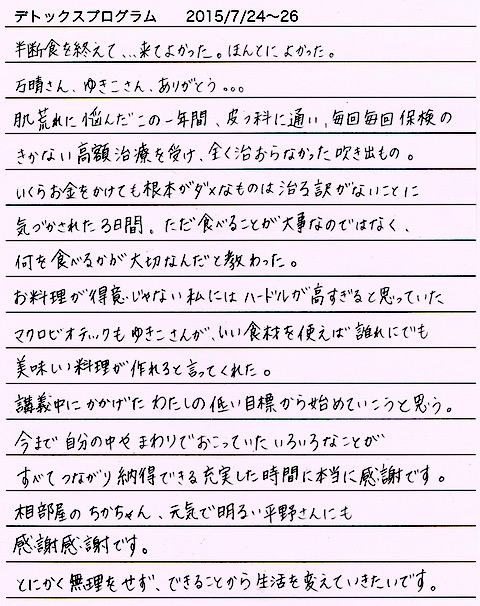 デトックスプログラム　　2015/7/24〜26
半断食を終えて…来てよかった。ほんとによかった。
石晴さん、ゆきこさん、ありがとう。。。
肌荒れに悩んだこの一年間、皮フ科に通い、毎回毎回保険の
きかない高額治療を受け、全く治おらなかった吹き出もの。
いくらお金をかけても根本がダメなものは治る訳がないことに
気づかされた3日間。ただ食べることが大事なのではなく、
何を食べるかが大切なんだと教わった。
お料理が得意じゃない私にはハードルが高すぎると思っていた
マクロビオティックもゆきこさんが、いい食材を使えば誰れにでも
美味しい料理が作れると言ってくれた。
講義中にかかげたわたしの低い目標から始めていこうと思う。
今まで自分の中やまわりでおこっていたいろいろなことが
すべてつながり納得できる充実した時間に本当に感謝です。
相部屋のちかちゃん、元気で明るい平野さんにも
感謝感謝です。
とにかく無理をせず、できることから生活を変えていきたいです。